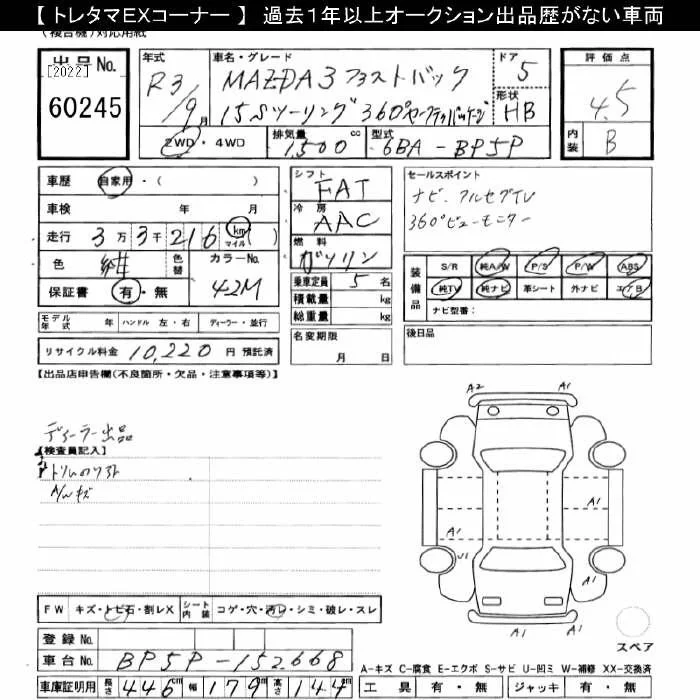 【トレタマEXコーナー】 過去1年以上オークション出品歴がない車両
(複合機)対応用紙
出品No.
[2022]
60245
年式
R3/9月
車名・グレード
MAZDA3 ファストバック
15Sツーリング 360°セーフティパッケージ
ドア
5
形状
HB
評価点
4.5
内装 B
2WD・4WD
排気量 1,500 cc
型式 6BA-BP5P
車歴 自家用・( )
車検 年 月
走行 3万3千216 km マイル ( )
色 紺 色替 カラーNo. 42M
保証書 有・無
シフト FAT
冷房 AAC
燃料 ガソリン
乗車定員 5 名
積載量 kg
総重量 kg
セールスポイント
ナビ、フルセグTV
360°ビューモニター
装備品 S/R 純A/W P/S P/W ABS
純TV 純ナビ 革シート 外ナビ エアB
ナビ型番:
モデル年式 年 ハンドル 左・右 ディーラー・並行
リサイクル料金 10,220 円 預託済
名変期限 月 日
後日品
【出品店申告欄(不良箇所・欠品・注意事項等)】
ディーラー出品
【検査員記入】
A/Wキズ
A2 A1
A1
A1 A1
U1 A1
A1
スペア
FW キズ・トビ石・割レX シート内装 コゲ・穴・汚レ・シミ・破レ・スレ
登録No.
車台No. BP5P-152668
A-キズ C-腐食 E-エクボ S-サビ U-凹ミ W-補修 XX-交換済
車庫証明用 長さ 446cm 幅 179cm 高さ 144cm
工具 有・無 ジャッキ 有・無